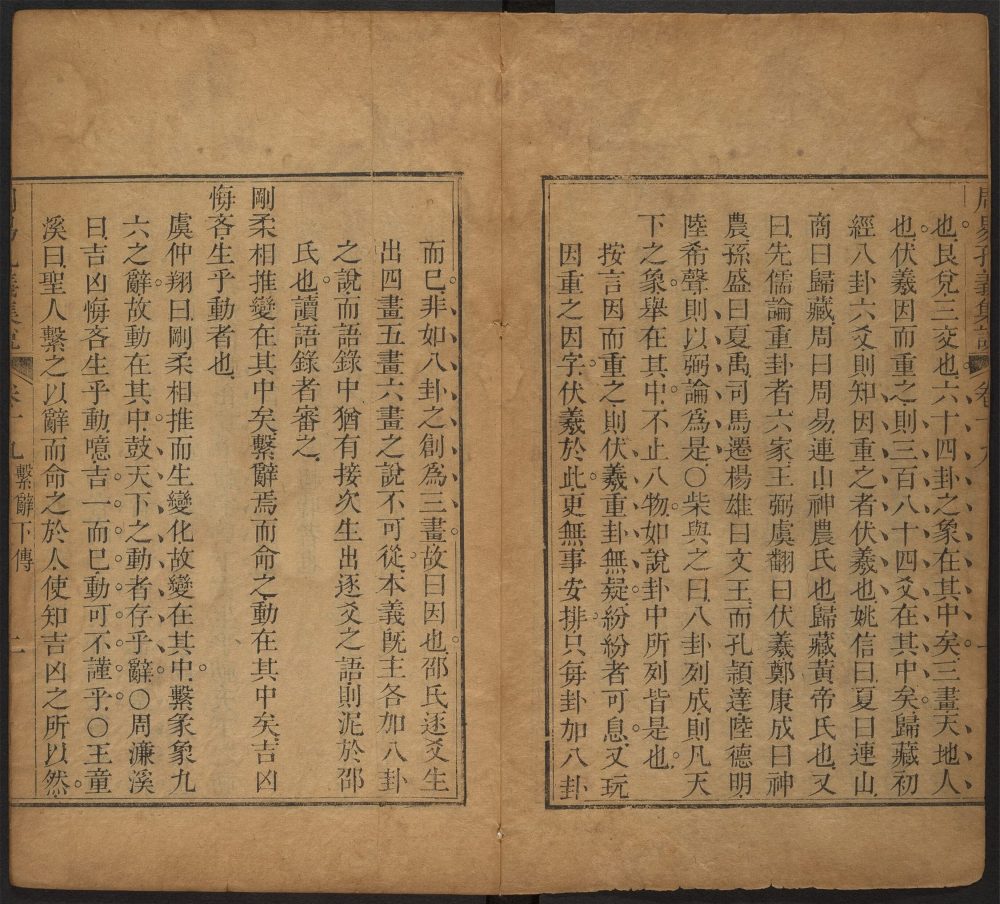 周易孔義集說 卷十九
也艮兌三交也六十四卦之象在其中矣三畫天地人
也伏羲因而重之則三百八十四爻在其中矣歸藏初
經八卦六爻則知因重之者伏羲也姚信曰夏曰連山
商曰歸藏周曰周易連山神農氏也歸藏黃帝氏也又
曰先儒論重卦者六家王弼虞翻曰伏羲鄭康成曰神
農孫盛曰夏禹司馬遷楊雄曰文王而孔頴達陸德明
陸希聲則以弼論爲是○柴與之曰八卦列成則凡天
下之象舉在其中不止八物如說卦中所列皆是也
按言因而重之則伏羲重卦無疑紛紛者可息又玩
因重之因字伏羲於此更無事安排只每卦加八卦
而已非如八卦之創爲三畫故曰因也邵氏逐爻生
出四畫五畫六畫之說不可從本義旣主各加八卦
之說而語錄中猶有接次生出逐爻之語則泥於邵
氏也讀語錄者審之
剛柔相推變在其中矣繫辭焉而命之動在其中矣吉凶
悔吝生乎動者也
虞仲翔曰剛柔相推而生變化故變在其中繫彖象九
六之辭故動在其中鼓天下之動者存乎辭○周濂溪
曰吉凶悔吝生乎動噫吉一而已動可不謹乎○王童
溪曰聖人繫之以辭而命之於人使知吉凶之所以然
卷十九 繫辭下傳 二